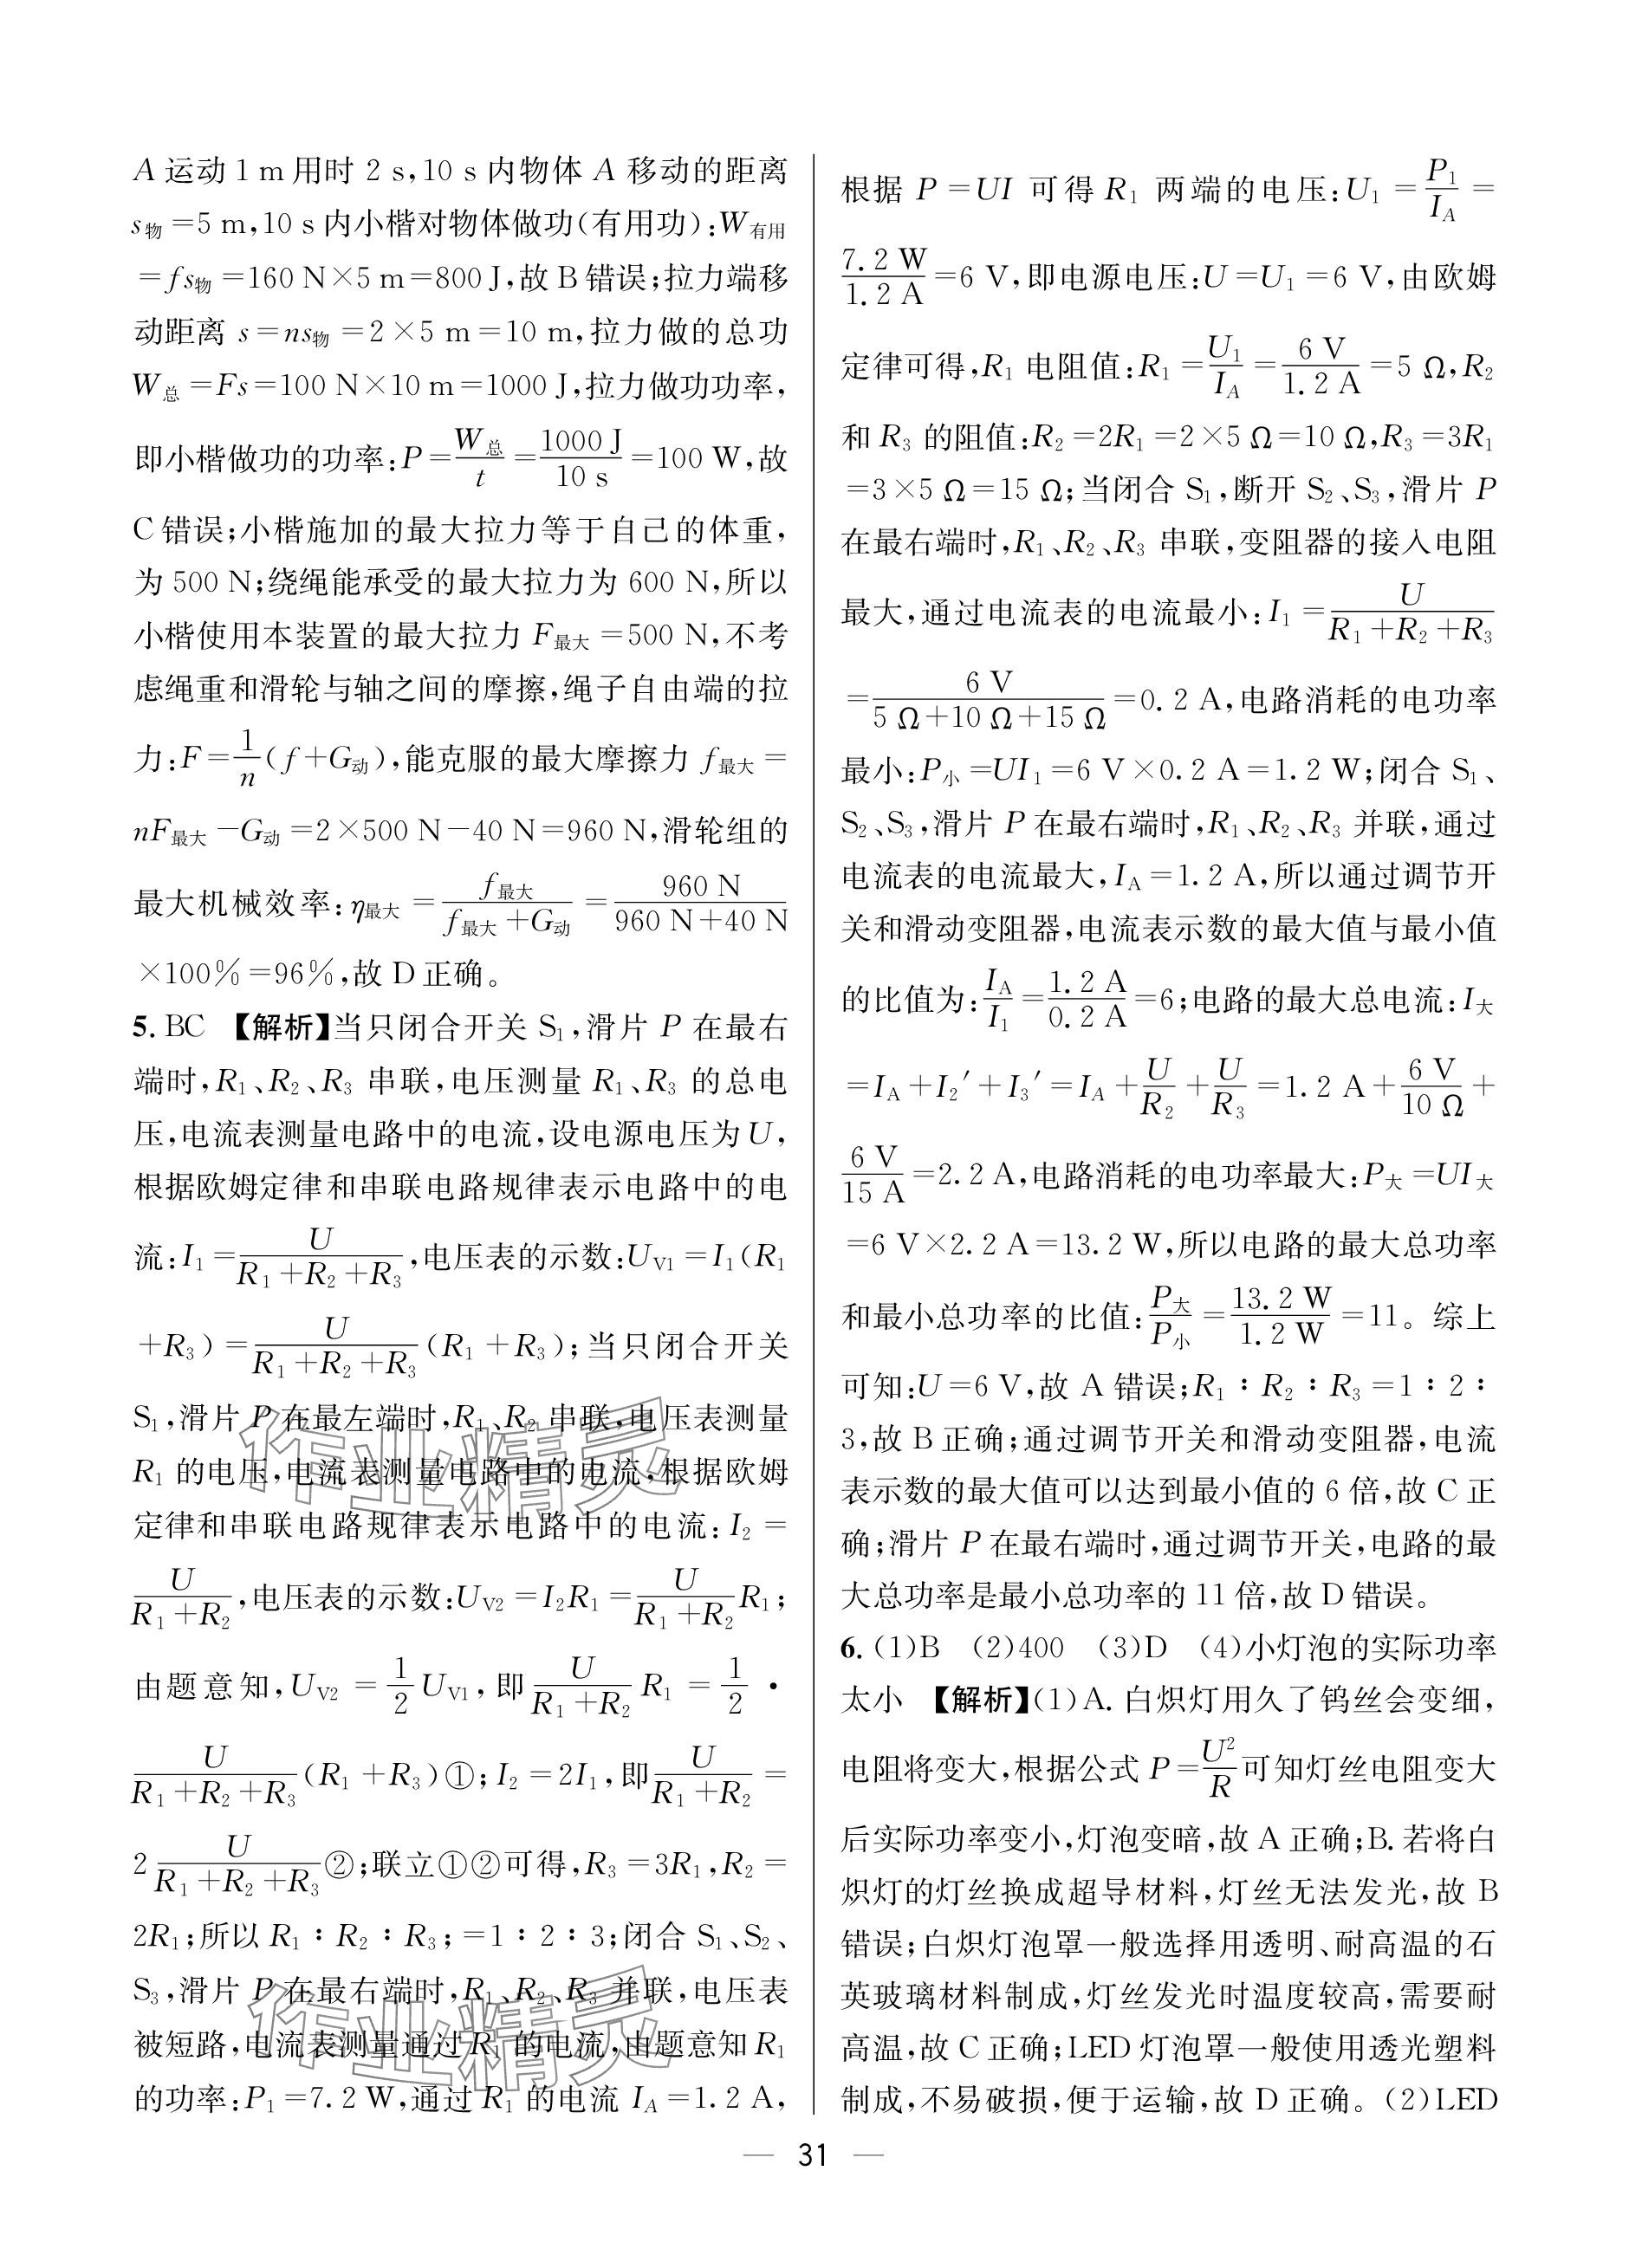 A 运动 1 m 用时 2 s,10 s 内物体 A 移动的距离
s物=5 m,10 s 内小楷对物体做功(有用功):W有用
=fs物=160 N×5 m=800 J,故 B 错误;拉力端移
动距离 s=ns物=2×5 m=10 m,拉力做的总功
W总=Fs=100 N×10 m=1000 J,拉力做功功率,
即小楷做功的功率:P=W总/t=1000 J/10 s=100 W,故
C 错误;小楷施加的最大拉力等于自己的体重,
为 500 N;绕绳能承受的最大拉力为 600 N,所以
小楷使用本装置的最大拉力 F最大=500 N,不考
虑绳重和滑轮与轴之间的摩擦,绳子自由端的拉
力:F=1/n(f+G动),能克服的最大摩擦力 f最大=
nF最大-G动=2×500 N-40 N=960 N,滑轮组的
最大机械效率:η最大=f最大/(f最大+G动)=960 N/(960 N+40 N)
×100%=96%,故 D 正确。
5. BC 【解析】当只闭合开关 S₁,滑片 P 在最右
端时,R₁、R₂、R₃ 串联,电压测量 R₁、R₃ 的总电
压,电流表测量电路中的电流,设电源电压为 U,
根据欧姆定律和串联电路规律表示电路中的电
流:I₁=U/(R₁+R₂+R₃),电压表的示数:UV1=I₁(R₁
+R₃)=U/(R₁+R₂+R₃)(R₁+R₃);当只闭合开关
S₁,滑片 P 在最左端时,R₁、R₂ 串联,电压表测量
R₁ 的电压,电流表测量电路中的电流,根据欧姆
定律和串联电路规律表示电路中的电流:I₂=
U/(R₁+R₂),电压表的示数:UV2=I₂R₁=U/(R₁+R₂)R₁;
由题意知,UV2=1/2UV1,即U/(R₁+R₂)R₁=1/2·
U/(R₁+R₂+R₃)(R₁+R₃)①;I₂=2I₁,即U/(R₁+R₂)=
2U/(R₁+R₂+R₃)②;联立①②可得,R₃=3R₁,R₂=
2R₁;所以 R₁∶R₂∶R₃;=1∶2∶3;闭合 S₁、S₂、
S₃,滑片 P 在最右端时,R₁、R₂、R₃ 并联,电压表
被短路,电流表测量通过 R₁ 的电流,由题意知 R₁
的功率:P₁=7.2 W,通过 R₁ 的电流 IA=1.2 A,
根据 P=UI 可得 R₁ 两端的电压:U₁=P₁/IA=
7.2 W/1.2 A=6 V,即电源电压:U=U₁=6 V,由欧姆
定律可得,R₁ 电阻值:R₁=U₁/IA=6 V/1.2 A=5 Ω,R₂
和 R₃ 的阻值:R₂=2R₁=2×5 Ω=10 Ω,R₃=3R₁
=3×5 Ω=15 Ω;当闭合 S₁,断开 S₂、S₃,滑片 P
在最右端时,R₁、R₂、R₃ 串联,变阻器的接入电阻
最大,通过电流表的电流最小:I₁=U/(R₁+R₂+R₃)
=6 V/(5 Ω+10 Ω+15 Ω)=0.2 A,电路消耗的电功率
最小:P小=UI₁=6 V×0.2 A=1.2 W;闭合 S₁、
S₂、S₃,滑片 P 在最右端时,R₁、R₂、R₃ 并联,通过
电流表的电流最大,IA=1.2 A,所以通过调节开
关和滑动变阻器,电流表示数的最大值与最小值
的比值为:IA/I₁=1.2 A/0.2 A=6;电路的最大总电流:I大
=IA+I₂′+I₃′=IA+U/R₂+U/R₃=1.2 A+6 V/10 Ω+
6 V/15 A=2.2 A,电路消耗的电功率最大:P大=UI大
=6 V×2.2 A=13.2 W,所以电路的最大总功率
和最小总功率的比值:P大/P小=13.2 W/1.2 W=11。综上
可知:U=6 V,故 A 错误;R₁∶R₂∶R₃=1∶2∶
3,故 B 正确;通过调节开关和滑动变阻器,电流
表示数的最大值可以达到最小值的 6 倍,故 C 正
确;滑片 P 在最右端时,通过调节开关,电路的最
大总功率是最小总功率的 11 倍,故 D 错误。
6. (1)B (2)400 (3)D (4)小灯泡的实际功率
太小 【解析】(1)A. 白炽灯用久了钨丝会变细,
电阻将变大,根据公式 P=U²/R可知灯丝电阻变大
后实际功率变小,灯泡变暗,故 A 正确;B. 若将白
炽灯的灯丝换成超导材料,灯丝无法发光,故 B
错误;白炽灯泡罩一般选择用透明、耐高温的石
英玻璃材料制成,灯丝发光时温度较高,需要耐
高温,故 C 正确;LED 灯泡罩一般使用透光塑料
制成,不易破损,便于运输,故 D 正确。(2)LED
— 31 —
作业精灵
作业精灵